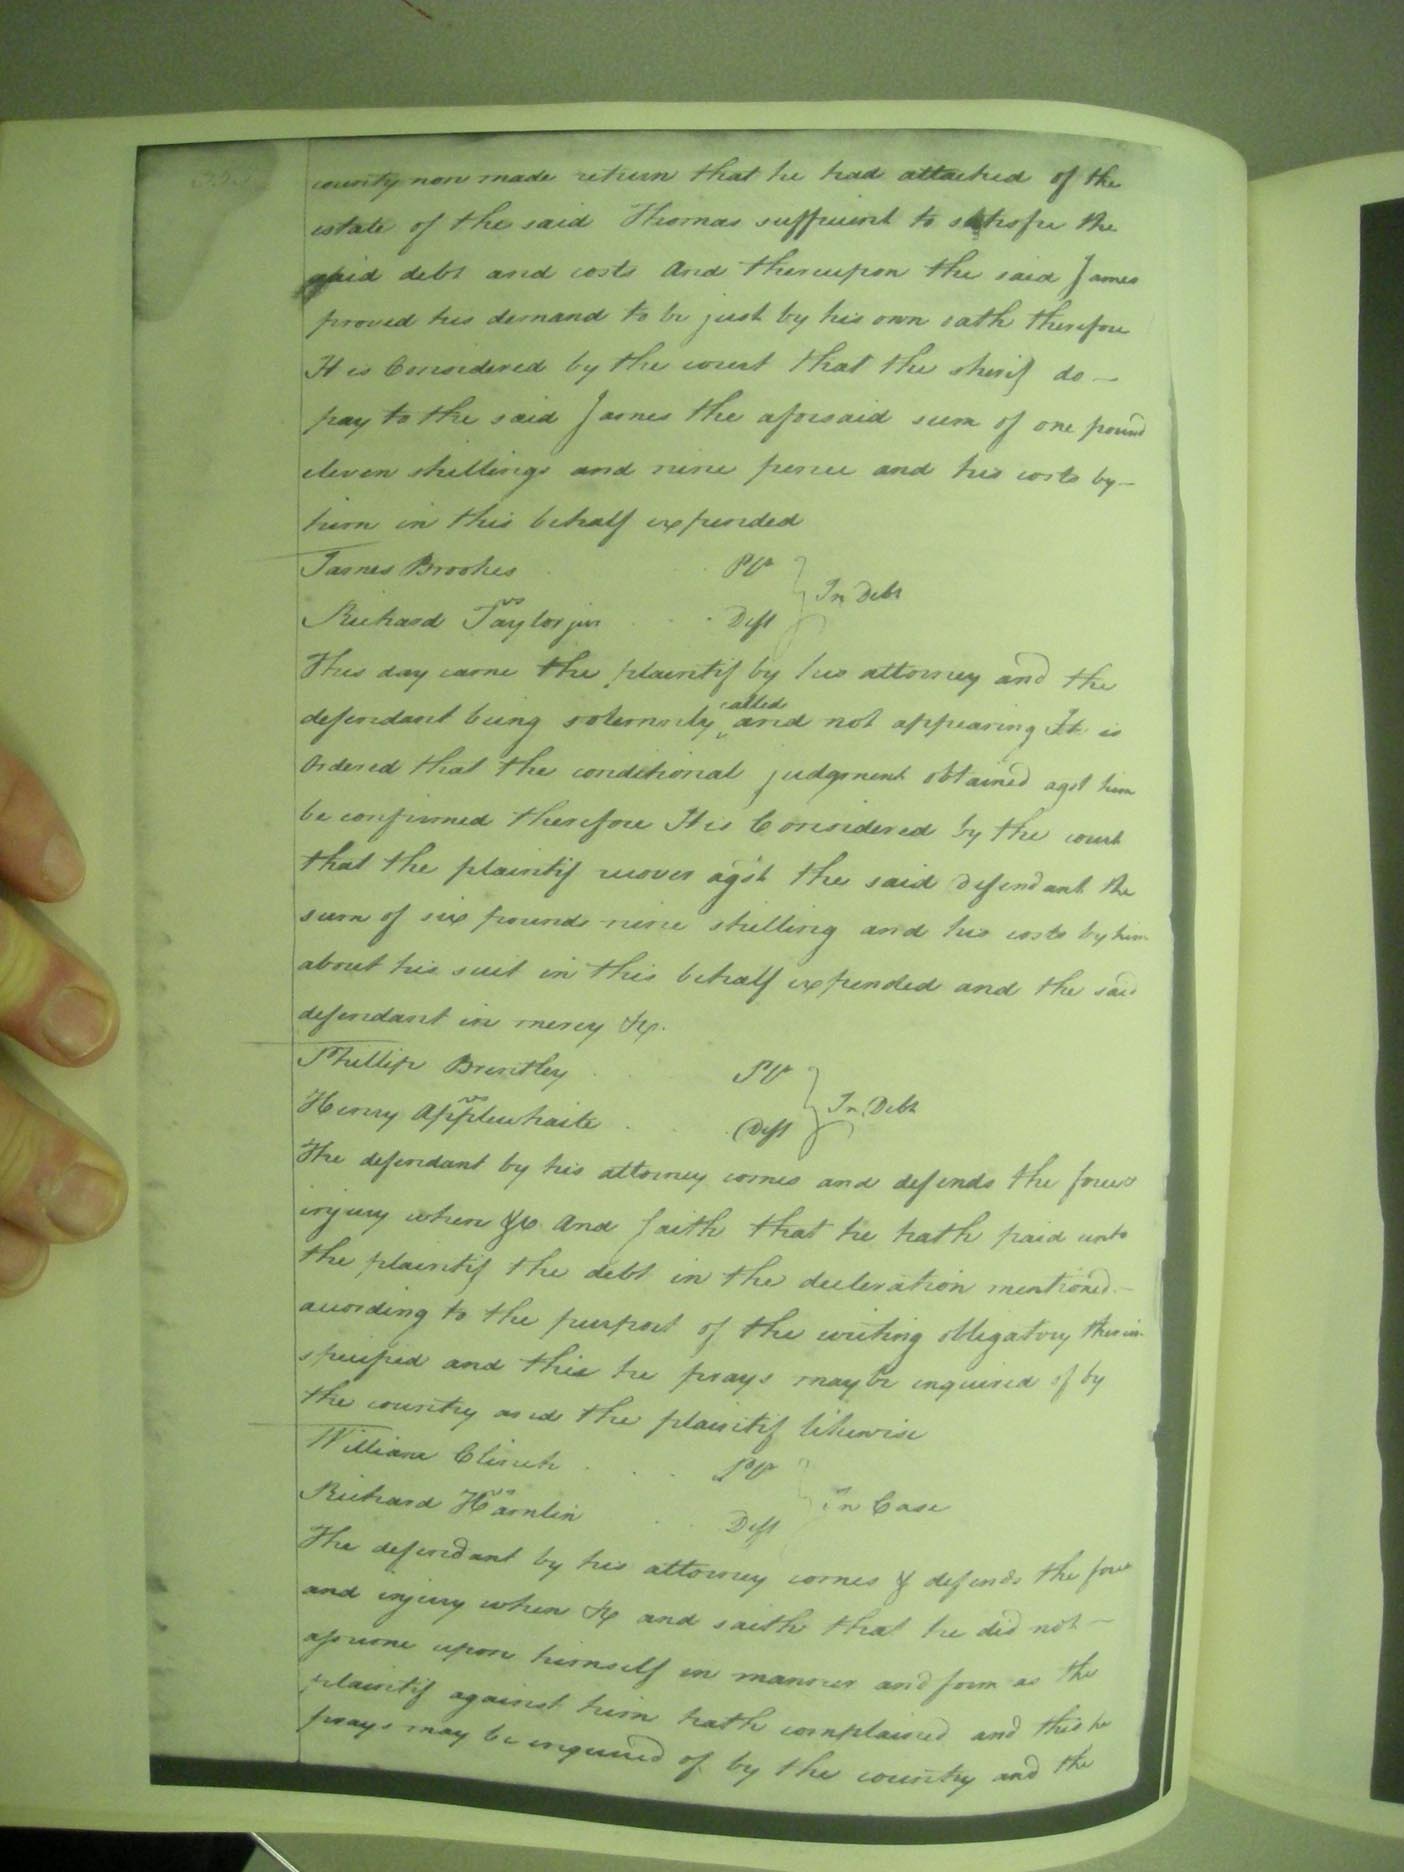 county now made return that he had attached of the
estate of the said Thomas sufficient to satisfie the
said debt and costs And thereupon the said James
proved his demand to be just by his own oath therefore
It is Considered by the court that the sherif do —
pay to the said James the aforesaid sum of one pound
eleven shillings and nine pence and his costs by —
him in this behalf expended
James Brookes . . Plt
vs } In Debt
Richard Taylor jun . . . Deft
This day came the plaintif by his attorney and the
defendant being solemnly called and not appearing It is
Ordered that the conditional judgment obtained agst him
be confirmed therefore It is Considered by the court
that the plaintif recover agst the said Defendant the
sum of six pounds nine shilling and his costs by him
about his suit in this behalf expended and the said
defendant in mercy &c.
Phillip Brentley . . Plt
vs } In Debt
Henry Applewhaite . . . Deft
The defendant by his attorney comes and defends the force &
injury when &c And saith that he hath paid unto
the plaintif the debt in the decleration mentioned —
according to the purport of the writing obligatory therein
specified and this he prays may be inquired of by
the country and the plaintif likewise
William Clinch . . . Plt
vs } In Case
Richard Hamlin . . Deft
The defendant by his attorney comes & defends the force
and injury when &c and saith that he did not —
assume upon himself in manner and form as the
plaintif against him hath complained and this he
prays may be inquired of by the country and the